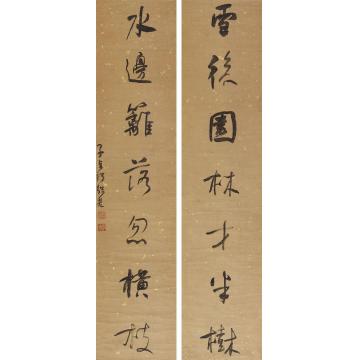 雪後園林才半樹
水邊籬落忽橫枝
子貞何紹基